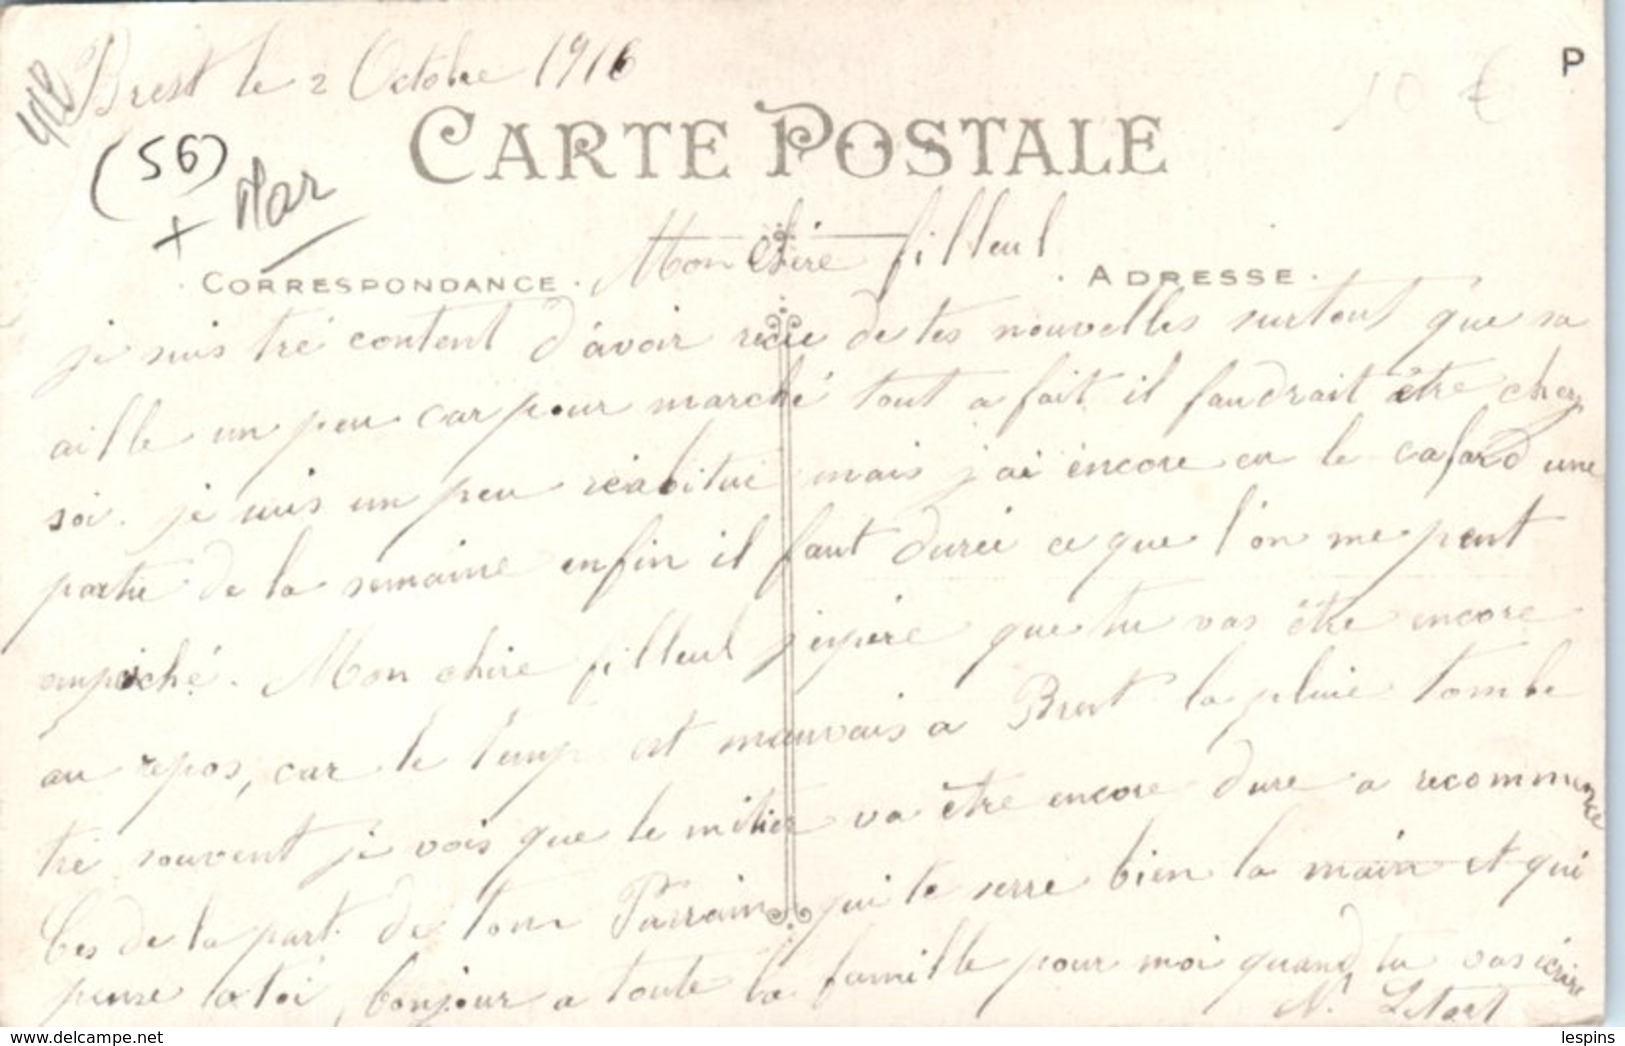 Brest le 2 Octobre 1916
P
10 €
(56)
+ Mar
CARTE POSTALE
Mon chère filleul
CORRESPONDANCE
ADRESSE
je suis tré content d'avoir recue de tes nouvelles surtout que sa
aille un peu car pour marché tout a fait il faudrait être chez
soi. je suis un peu réabitué mais j'ai encore eu le cafard une
partie de la semaine enfin il faut durée ce que l'on me peut
empêché. Mon chère filleul j'espère que tu vas être encore
au repos, car le temp est mauvais a Brest la pluie tombe
tré souvent je vois que le métier va être encore dure a recommence
Ces de la part de ton Parrain qui te serre bien la main et qui
pense a toi, bonjour a toute la famille pour moi quand tu vas écrire
N.
www.delcampe.net
lespins